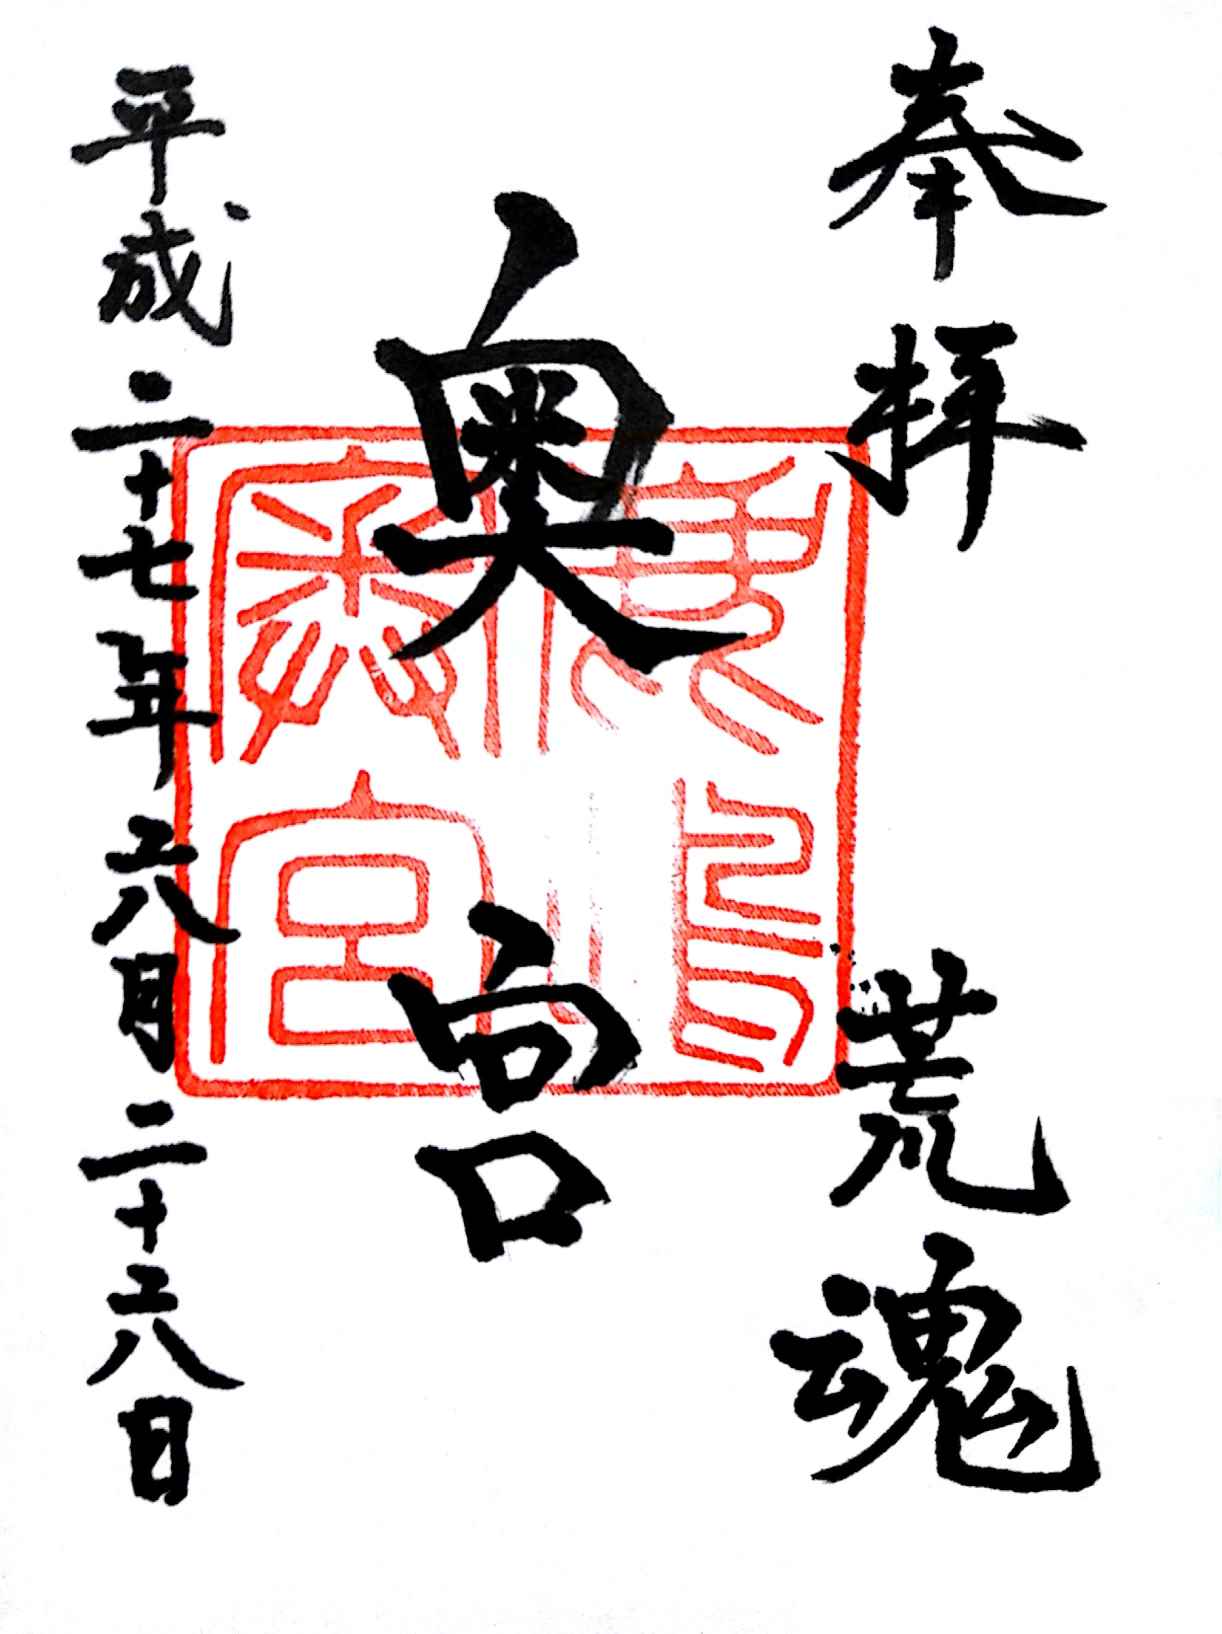 奉拝 荒魂
奥宮
平成二十七年六月二十六日
鹿嶋
奥宮